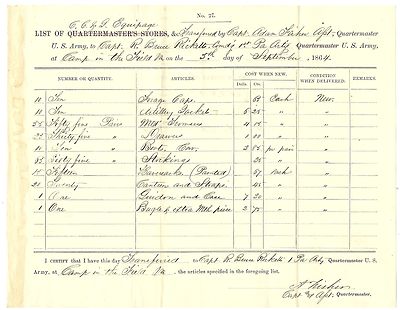 No. 27.
C. C. & G. Equipage
LIST OF QUARTERMASTER'S STORES, &c Transferred by Capt. Fisher Apt. Quartermaster
U. S. Army, to Capt. R. Bruce Ricketts Comdg 1st Pa Arty Quartermaster U. S. Army,
at Camp in the Field Va on the 5th day of September, 1864
NUMBER OR QUANTITY. ARTICLES. COST WHEN NEW. CONDITION WHEN DELIVERED. REMARKS.
Dolls. Cts.
10 Ten Forage Caps Each New
10 Ten Artillery Jackets " "
Fifty five Pairs Trowsers " "
Thirty five " Drawers " "
10 Ten " Boots, Cav. per pair "
Sixty five " Stockings " "
Fifteen Haversacks (Painted) Each "
20 Twenty Canteens and Straps " "
1 One Guidon and Case 7 20 " "
1 One Bugle & extra Mth piece 2 70 " "
I CERTIFY that I have this day Transferred to Capt R. Bruce Ricketts 1 Pa Arty Quartermaster U. S.
Army, at Camp in the Field Va, the articles specified in the foregoing list.
Fisher
Capt & Apt. Quartermaster.